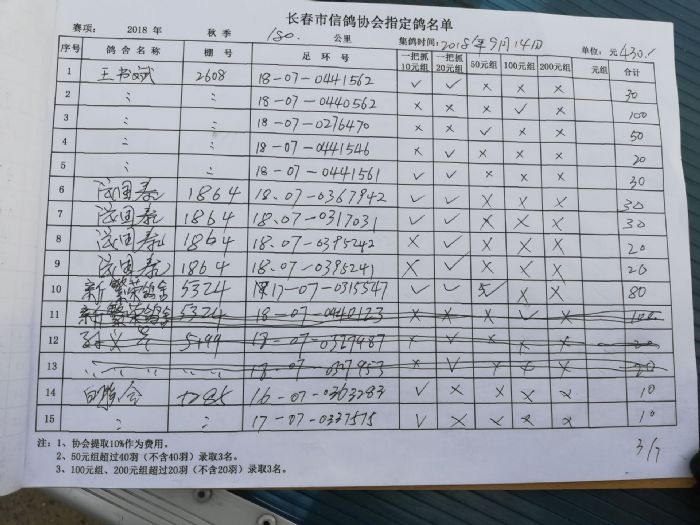 长春市信鸽协会指定鸽名单
赛项: 2018 年 秋季 180. 公里 集鸽时间: 2018年9月14日 单位: 元 430.
序号 鸽舍名称 棚号 足环号 一把抓10元组 一把抓20元组 50元组 100元组 200元组 元组 合计
1 王书斌 2608 18-07-0441562 ✓ ✓ × × × 30
2 〃 〃 18-07-0440562 × × × ✓ × 100
3 〃 〃 18-07-0276470 × × ✓ × × 50
4 〃 〃 18-07-0441546 × ✓ × × × 20
5 〃 〃 18-07-0441561 ✓ ✓ × × × 30
6 1864 18.07-0367942 ✓ ✓ × × × 30
7 1864 18-07-0317031 ✓ ✓ × × × 30
8 1864 18-07-0395242 × ✓ × × × 20
9 1864 18.07-0395241 × ✓ × × × 20
10 新繁荣鸽舍 5324 17-07-0315547 ✓ ✓ × × 80
11 新繁荣鸽舍 5324 18-07-0940123 × × × ✓ × 100
12 5499 18-07-0327987 × ✓ × × ×
13 〃 〃 18-07-0327953 × ✓ × × × 20
14 16-07-0303283 ✓ × × × × 10
15 〃 〃 17-07-0327575 ✓ × × × × 10
注: 1、协会提取10%作为费用。
2、50元组超过40羽(不含40羽)录取3名。
3、100元组、200元组超过20羽(不含20羽)录取3名。
3/7